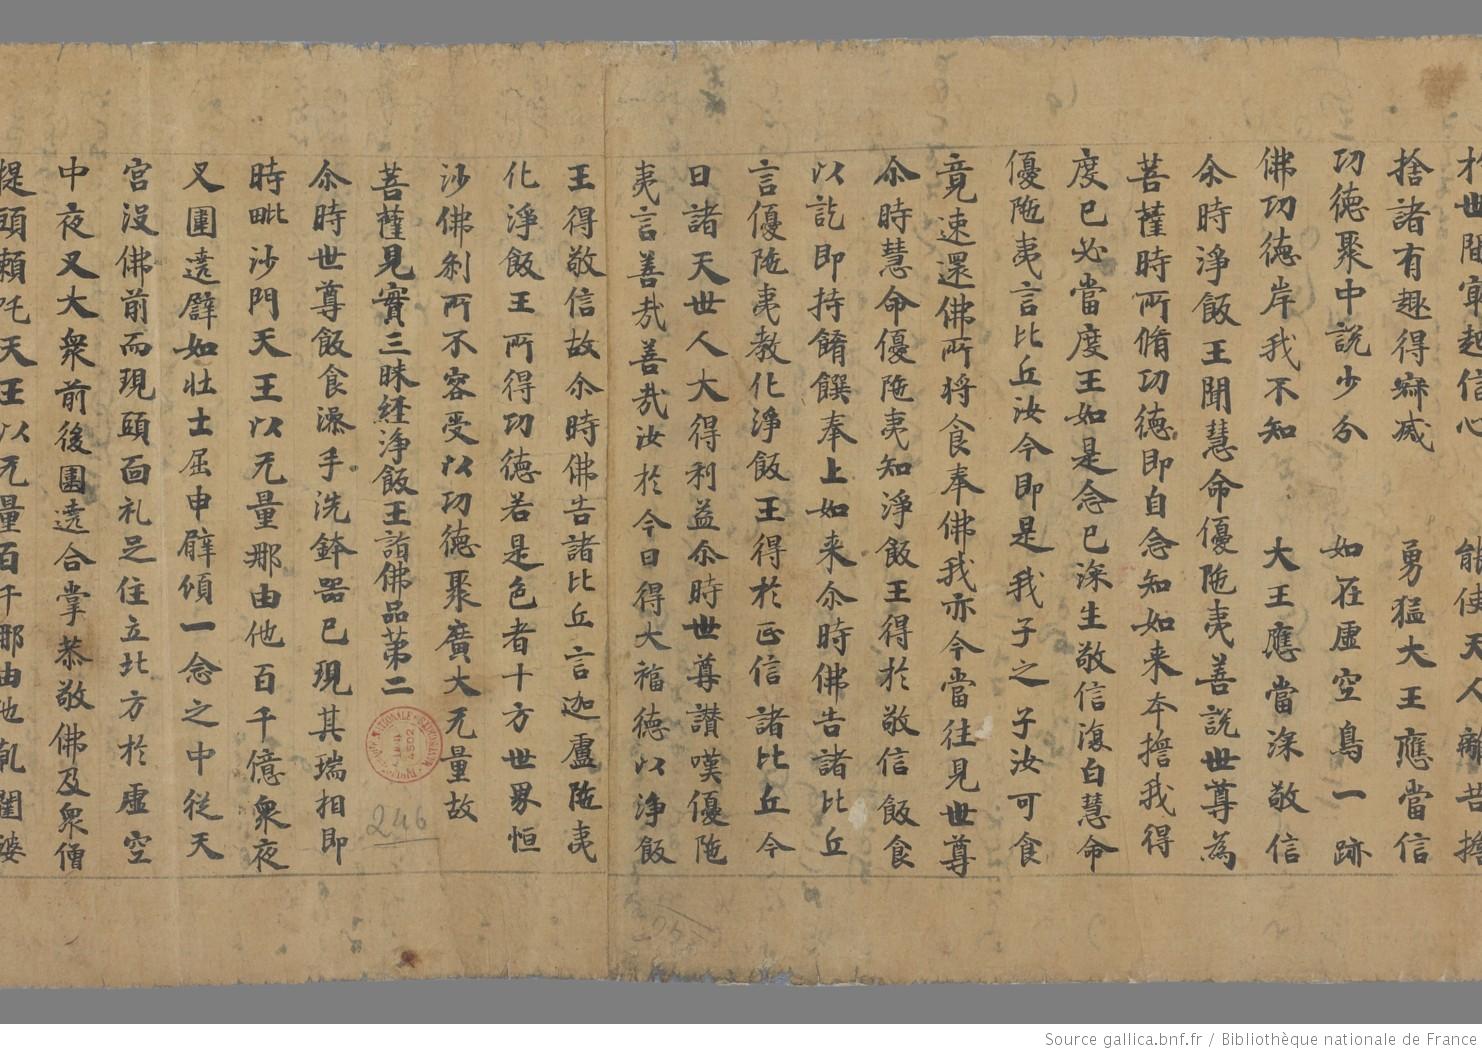 於世間寂起信心　能使天人離苦擔
捨諸有趣得寂滅　勇猛大王應當信
功德聚中說少分　如在虛空鳥一跡
佛功德岸我不知　大王應當深敬信
尒時淨飯王聞慧命優陁夷善說世尊為
菩薩時所脩功德即自念知如来本擔我得
度已必當度王如是念已深生敬信復白慧命
優陁夷言比丘汝今即是我子之子汝可食
竟速還佛所将食奉佛我亦今當往見世尊
尒時慧命優陁夷知淨飯王得於敬信飯食
以訖即持餚饌奉上如来尒時佛告諸比丘
言優陁夷教化淨飯王得於正信諸比丘今
日諸天世人大得利益尒時世尊讃嘆優陁
夷言善㢤善㢤汝於今日得大福德以淨飯
王得敬信故尒時佛告諸比丘言迦盧陁夷
化淨飯王所得功德若是色者十方世界恒
沙佛刹所不容受以功德聚廣大无量故
菩薩見實三昧経淨飯王詣佛品苐二
尒時世尊飯食澡手洗鉢器已現其瑞相即
時毗沙門天王以无量那由他百千億衆夜
叉圍遶辟如壮士屈申臂傾一念之中從天
宮沒佛前而現頭面礼足住立北方於虛空
中夜叉大衆前後圍遶合掌恭敬佛及衆僧
提頭頼吒天王以无量百千那由他乹闥婆
BIBLIOTHÈQUE NATIONALE MANUSCRITS
4502
246
Source gallica.bnf.fr / Bibliothèque nationale de France